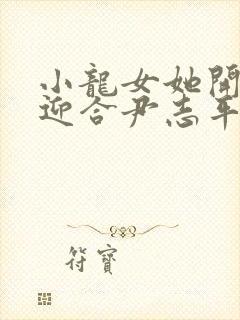 小龍女她開
迎合尹志平
符寶